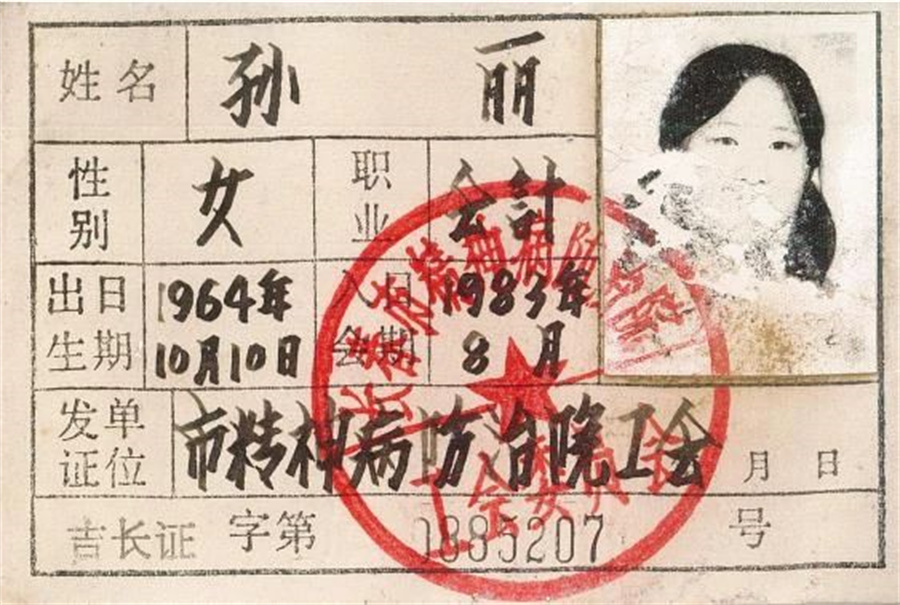 姓名 孙丽
性别 女 职业 会計
出生日期 1964年10月10日
入会日期 1983年8月
发证单位 市精神病防治院工会 月 日
吉长证 字第 号
长春市精神病防治院
工会委员会